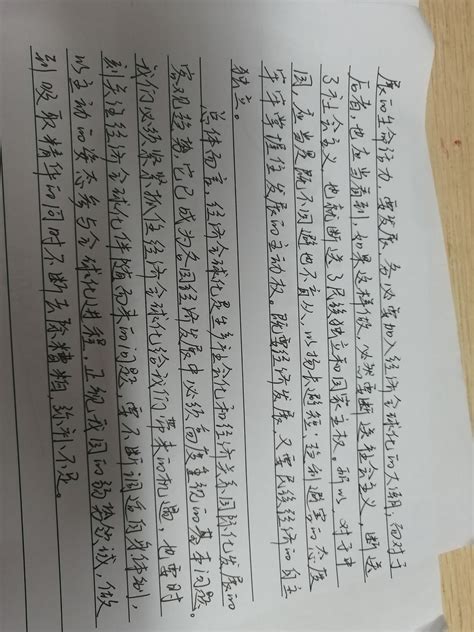 展的生命活力，要发展，务必要加入经济全球化的大潮，而对于
后者，也应当看到，如果这样做，必然要断送社会主义，断送
了社会主义，也就断送了民族独立和国家主权。所以，对于中
国，应当是既不回避也不盲从，以扬长避短，趋利避害的态度
牢牢掌握住发展的主动权。既要经济发展，又要民族经济的自主
独立。
总体而言，经济全球化是生产社会化和经济关系国际化发展的
客观趋势，它已成为各国经济发展中必须高度重视的基本问题。
我们必须紧紧抓住经济全球化给我们带来的机遇，也要时
刻关注经济全球化伴随而来的问题，要不断调适自身体制，
以主动的姿态参与全球化进程，正视我国的弱势领域，做
到吸取精华的同时不断去除糟粕，弥补不足。